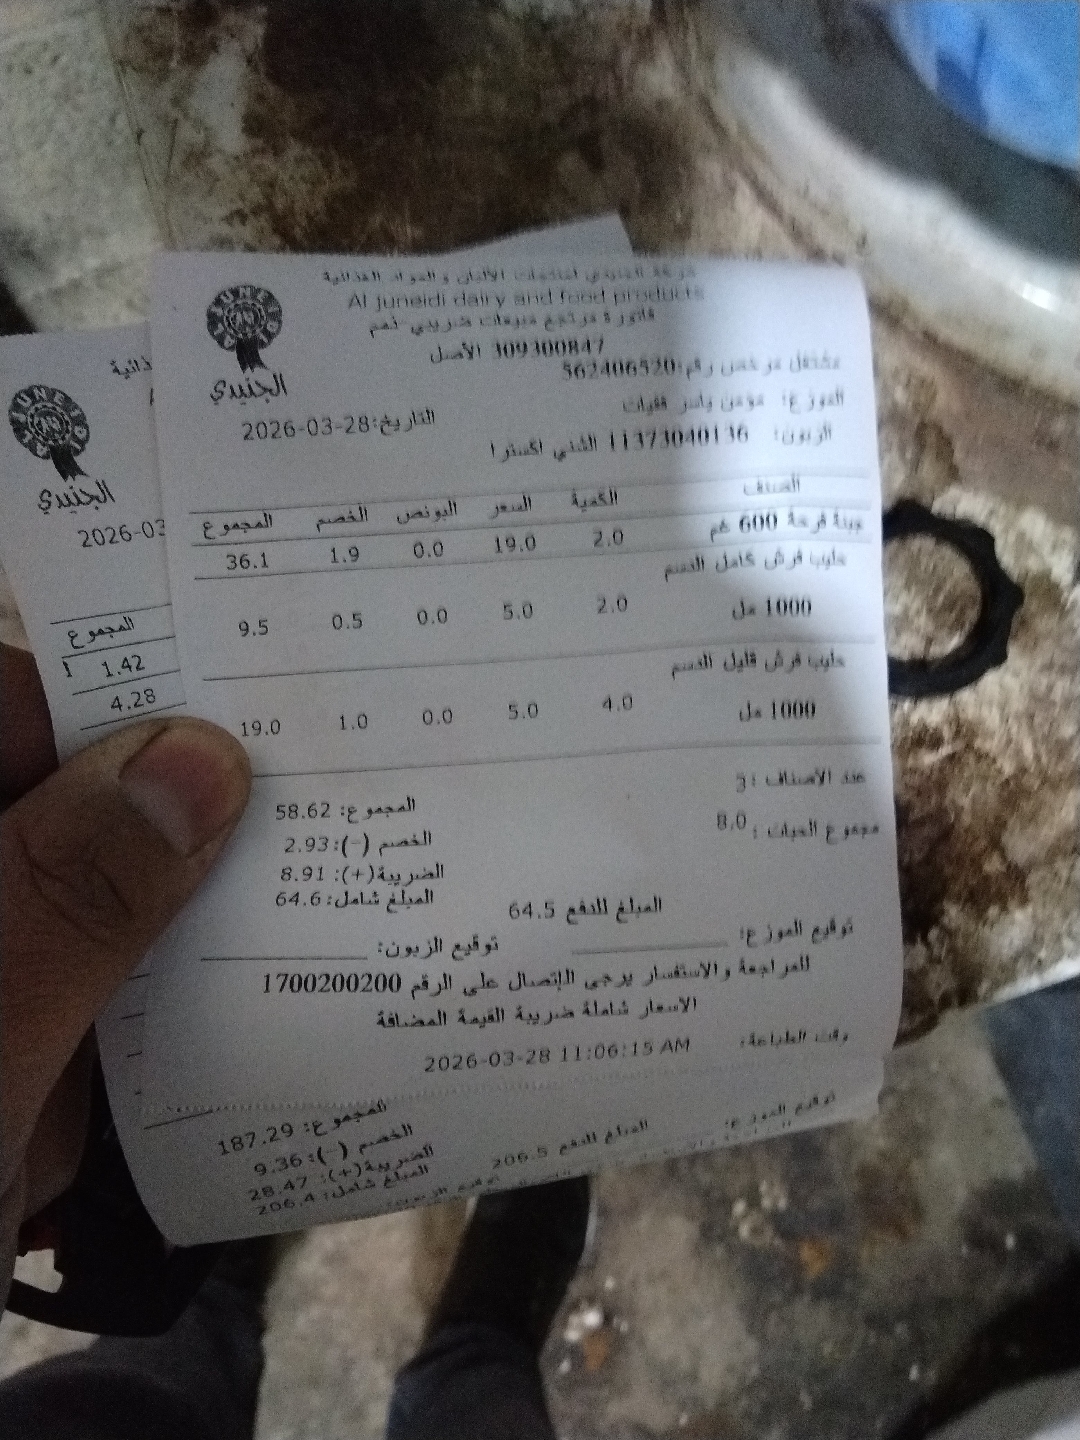 شركة الجنيدي لمنتجات الألبان و المواد الغذائية
Al Juneidi dairy and food products
فاتورة مرتجع مبيعات ضريبي ذمم
309300847 الأصل
مشتغل مرخص رقم:562406520
الموزع: مؤمن ياسر
التاريخ:2026-03-28
الزبون: 11373040136 اكسترا
الجنيدي
الصنف الكمية السعر البونص الخصم المجموع
جبنة فرحة 600 غم 2.0 19.0 0.0 1.9 36.1
حليب فرش كامل الدسم
1000 مل 2.0 5.0 0.0 0.5 9.5
حليب فرش قليل الدسم
1000 مل 4.0 5.0 0.0 1.0 19.0
عدد الأصناف :3
مجموع الحبات : 8.0
المجموع: 58.62
الخصم (-):2.93
الضريبة(+): 8.91
المبلغ شامل:64.6
المبلغ للدفع 64.5
توقيع الموزع:
توقيع الزبون:
للمراجعة و الاستفسار يرجى الإتصال على الرقم 1700200200
الاسعار شاملة ضريبة القيمة المضافة
وقت الطباعة: 2026-03-28 11:06:15 AM
الجنيدي
2026-03
المجموع
1.42
4.28
المجموع: 187.29
الخصم (-):9.36
الضريبة(+): 28.47
المبلغ شامل: 206.4
المبلغ للدفع 206.5
توقيع الموزع:
توقيع الزبون: